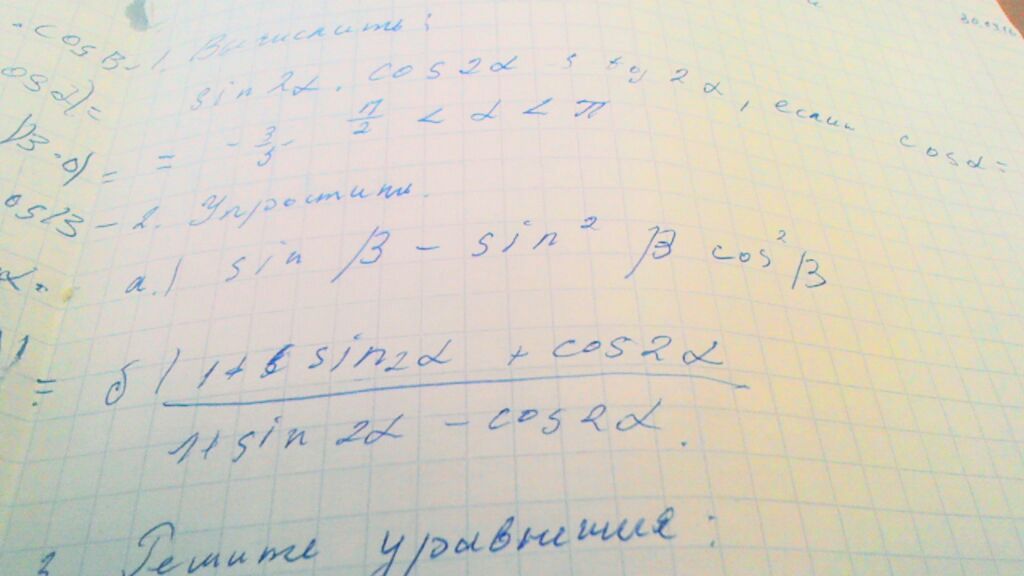 30.03.16
· cos β –
1. Вычислить:
sin 2α, cos 2α и tg 2α, если cos α =
= -3/5 π/2 < α < π
2. Упростить.
а.) sin β – sin² β cos² β
б) (1 + sin 2α + cos 2α) / (1 + sin 2α – cos 2α).
Решите уравнения: